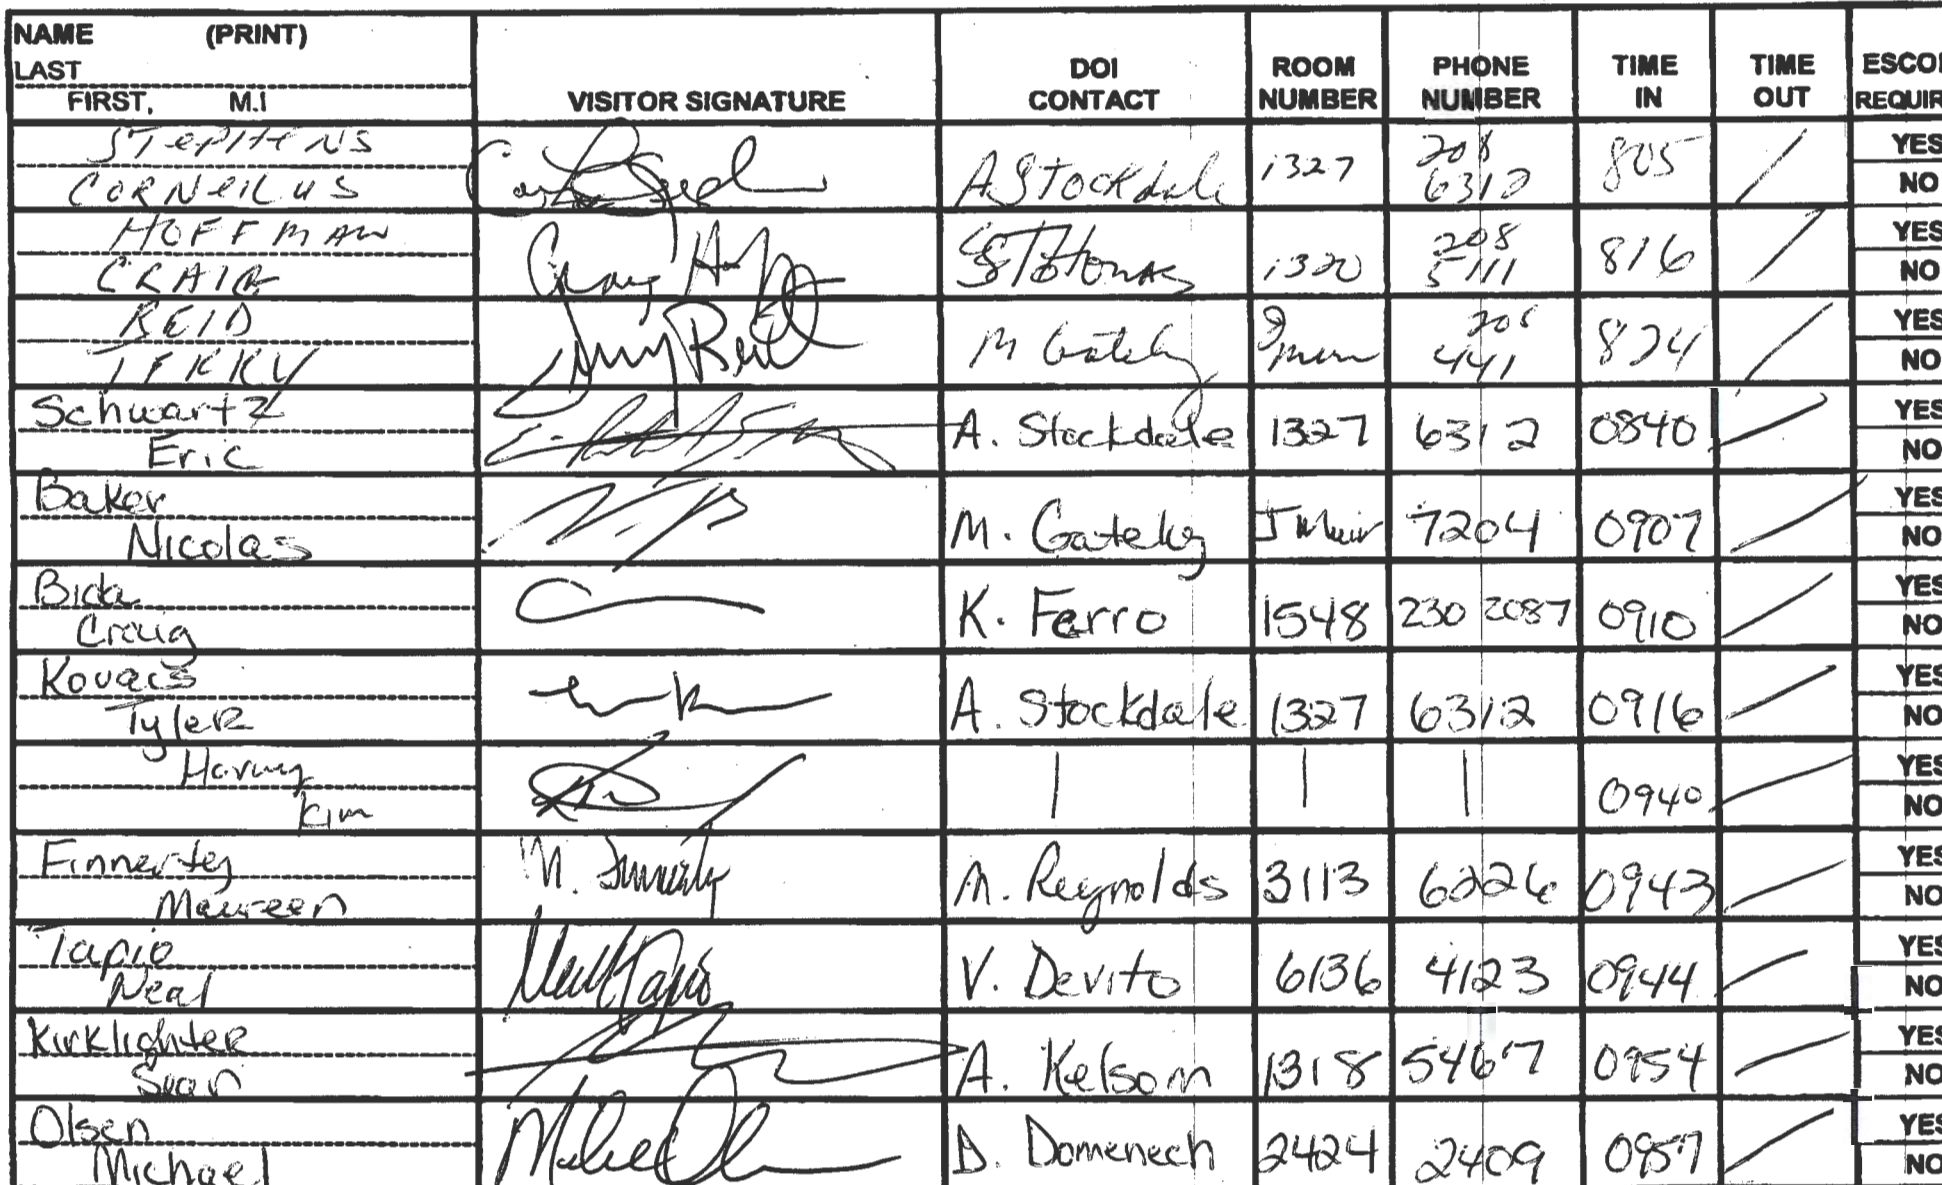 NAME (PRINT)
LAST
FIRST, M.I
VISITOR SIGNATURE
DOI CONTACT
ROOM NUMBER
PHONE NUMBER
TIME IN
TIME OUT
ESCOR
REQUIR
STEPHENS
CORNEILUS
A Stockdale 1327 208 6312 805 / YES NO
HOFFMAN
CRAIG
Craig 1320 208 5111 816 / YES NO
REID
TERRY
Terry Reid M Gately 441 824 / YES NO
Schwartz
Eric
A. Stockdale 1327 6312 0840 / YES NO
Baker
Nicolas
M. Gately J Muir 7204 0907 / YES NO
Bida
Craig
K. Ferro 1548 230 2087 0910 / YES NO
Kovacs
Tyler
A. Stockdale 1327 6312 0916 / YES NO
Harvey
Kim
| | | 0940 / YES NO
Finnerty
Maureen
M. Finnerty M. Reynolds 3113 6226 0943 / YES NO
Tapio
Neal
Neal Tapio V. Devito 6136 4123 0944 / YES NO
Kirklighter
Sean
A. Kelsom 1318 5467 0954 / YES NO
Olsen
Michael
D. Domenech 2424 2409 0957 / YES NO